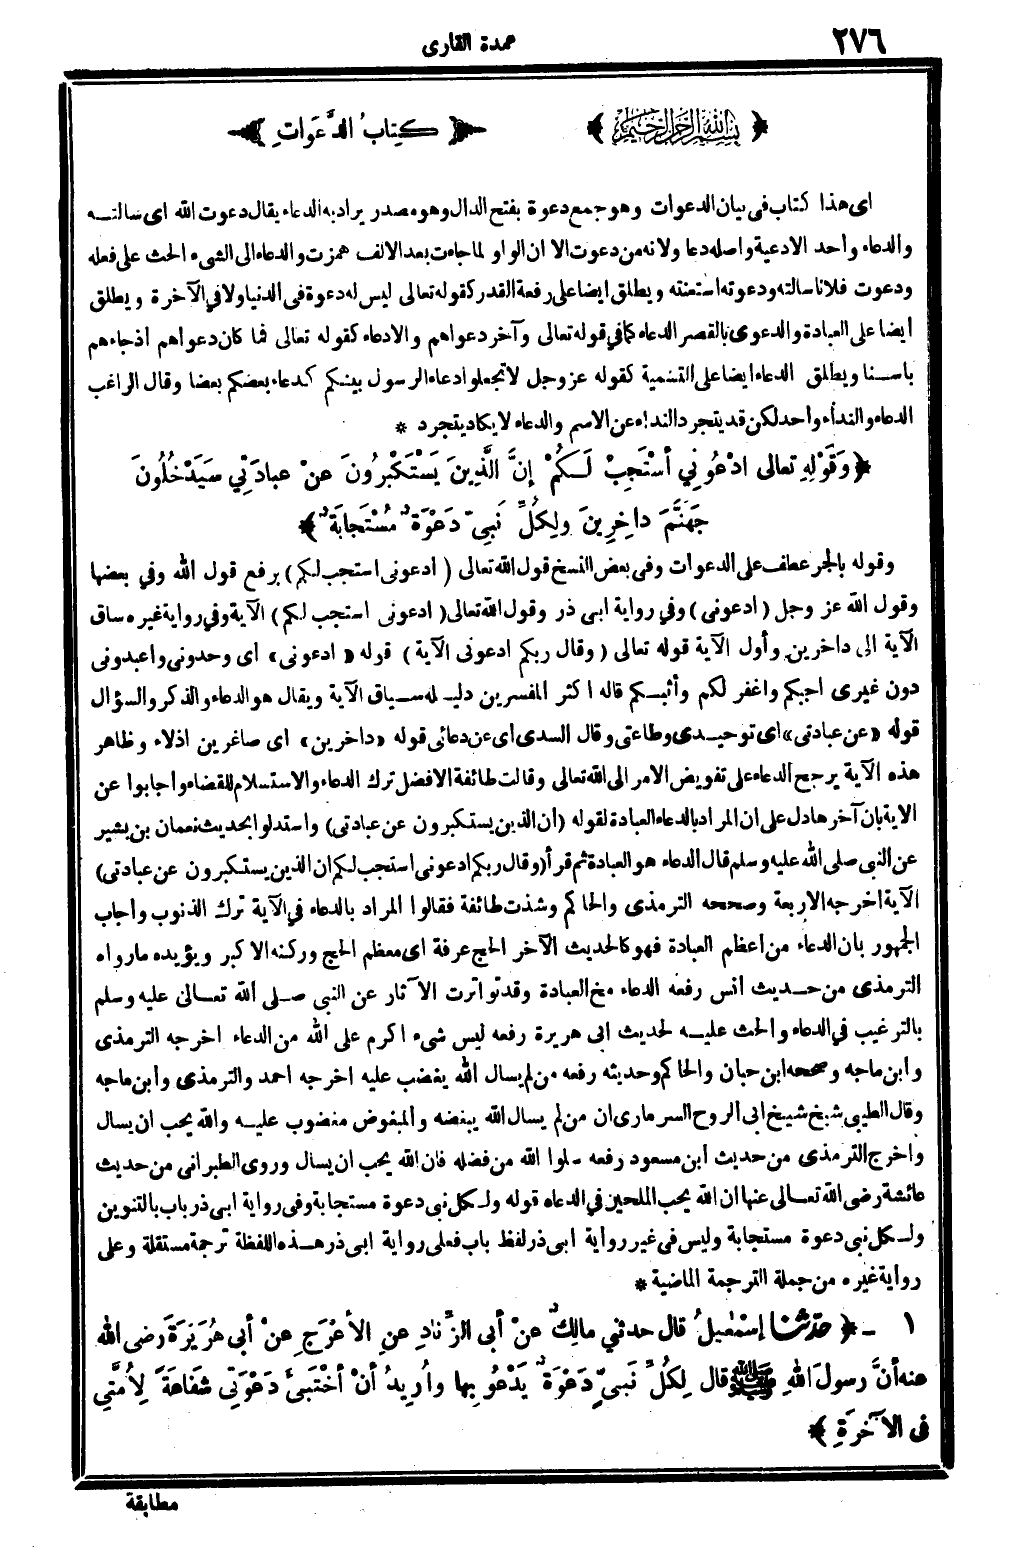 ٢٧٦
عمدة القارى
﴿ بسم الله الرحمن الرحيم ﴾
كتابُ الدَّعَواتِ
اى هذا كتاب فى بيان الدعوات وهو جمع دعوة بفتح الدال وهو مصدر يراد به الدعاء يقال دعوت الله اى سالته
والدعاء واحد الادعية واصله دعاو لانه من دعوت الا ان الواو لما جاءت بعد الالف همزت والدعاء الى الشىء الحث على فعله
ودعوت فلانا سالته ودعوته استعنته ويطلق ايضا على رفعة القدر كقوله تعالى ليس له دعوة فى الدنيا ولا في الآخرة ويطلق
ايضا على العبادة والدعوى بالقصر الدعاء كما في قوله تعالى وآخر دعواهم والادعاء كقوله تعالى فما كان دعواهم اذ جاءهم
باسنا ويطلق الدعاء ايضا على التسمية كقوله عز وجل لا تجعلوا دعاء الرسول بينكم كدعاء بعضكم بعضا وقال الراغب
الدعاء والنداء واحد لكن قد يتجرد النداء عن الاسم والدعاء لا يكاد يتجرد *
﴿ وَقَوْلِهِ تعالى ادْعُونِي أسْتَجِبْ لَكُمْ إنَّ الَّذِينَ يَسْتَكْبِرُونَ عنْ عبادَتِي سَيَدْخُلُونَ
جَهَنَّمَ داخِرِينَ ولِكُلِّ نَبِيّ دَعْوَةٌ مُسْتَجابَةٌ ﴾
وقوله بالجر عطف على الدعوات وفى بعض النسخ قول الله تعالى ( ادعونى استجب لكم ) برفع قول الله وفي بعضها
وقول الله عز وجل ( ادعونى ) وفي رواية ابى ذر وقول الله تعالى ( ادعونى استجب لكم ) الآية وفي رواية غيره ساق
الآية الى داخرين وأول الآية قوله تعالى ( وقال ربكم ادعونى الآية ) قوله « ادعونى » اى وحدونى واعبدونى
دون غيرى اجبكم واغفر لكم وأثبكم قاله اكثر المفسرين دليله سياق الآية ويقال هو الدعاء والذكر والسؤال
قوله « عن عبادتى » اى توحيدى وطاعتى وقال السدى اى عن دعائى قوله « داخرين » اى صاغرين اذلاء وظاهر
هذه الآية يرجح الدعاء على تفويض الامر الى الله تعالى وقالت طائفة الافضل ترك الدعاء والاستسلام للقضاء واجابوا عن
الاية بان آخرها دل على ان المراد بالدعاء العبادة لقوله ( ان الذين يستكبرون عن عبادتى ) واستدلوا بحديث نعمان بن بشير
عن النبى صلى الله عليه وسلم قال الدعاء هو العبادة ثم قرأ ( وقال ربكم ادعونى استجب لكم ان الذين يستكبرون عن عبادتى )
الآية اخرجه الاربعة وصححه الترمذى والحاكم وشذت طائفة فقالوا المراد بالدعاء في الآية ترك الذنوب وأجاب
الجمهور بان الدعاء من اعظم العبادة فهو كالحديث الآخر الحج عرفة اى معظم الحج وركنه الاكبر ويؤيده ما رواه
الترمذى من حديث انس رفعه الدعاء مخ العبادة وقد تواترت الآثار عن النبى صلى الله تعالى عليه وسلم
بالترغيب في الدعاء والحث عليه لحديث ابى هريرة رفعه ليس شىء اكرم على الله من الدعاء اخرجه الترمذى
وابن ماجه وصححه ابن حبان والحاكم وحديثه رفعه من لم يسال الله يغضب عليه اخرجه احمد والترمذى وابن ماجه
وقال الطيبى شيخ شيخ ابى الروح السرمارى ان من لم يسال الله يبغضه والمبغوض مغضوب عليه والله يحب ان يسال
واخرج الترمذى من حديث ابن مسعود رفعه سلوا الله من فضله فان الله يحب ان يسال وروى الطبرانى من حديث
عائشة رضى الله تعالى عنها ان الله يحب الملحين في الدعاء قوله ولكل نبى دعوة مستجابة وفى رواية ابى ذر باب بالتنوين
ولكل نبى دعوة مستجابة وليس فى غير رواية ابى ذر لفظ باب فعلى رواية ابى ذر هذه اللفظة ترجمة مستقلة وعلى
رواية غيره من جملة الترجمة الماضية *
١ - ﴿ حدَّثنا إسْمٰعِيلُ قال حدثني مالِكٌ عنْ أبى الزِّنادِ عنِ الأعْرَجِ عنْ أبى هُرَيْرَةَ رضى الله
عنه أنَّ رسولَ اللهِ ﷺ قال لِكُلِّ نَبيٍّ دَعْوَةٌ يَدْعُو بِها وأُرِيدُ أنْ أخْتَبِىَٔ دَعْوَتِي شَفاعَةً لِأُمَّتِي
فى الآخرَةِ ﴾
مطابقة